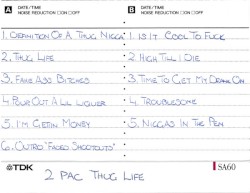 A DATE/TIME
NOISE REDUCTION □ON □OFF
B DATE/TIME
NOISE REDUCTION □ON □OFF
1. DEFINITION OF A THUG NIGGA
1. IS IT COOL TO FUCK
2. THUG LIFE
2. HIGH TILL I DIE
3. FAKE ASS BITCHES
3. TIME TO GET MY DRINK ON
4. POUR OUT A LIL LIQUER
4. TROUBLESOME
5. I'M GETIN MONEY
5. NIGGAS IN THE PEN
6. OUTRO "FADED SHOOTOUTS"
TDK
SA60
2 PAC THUG LIFE